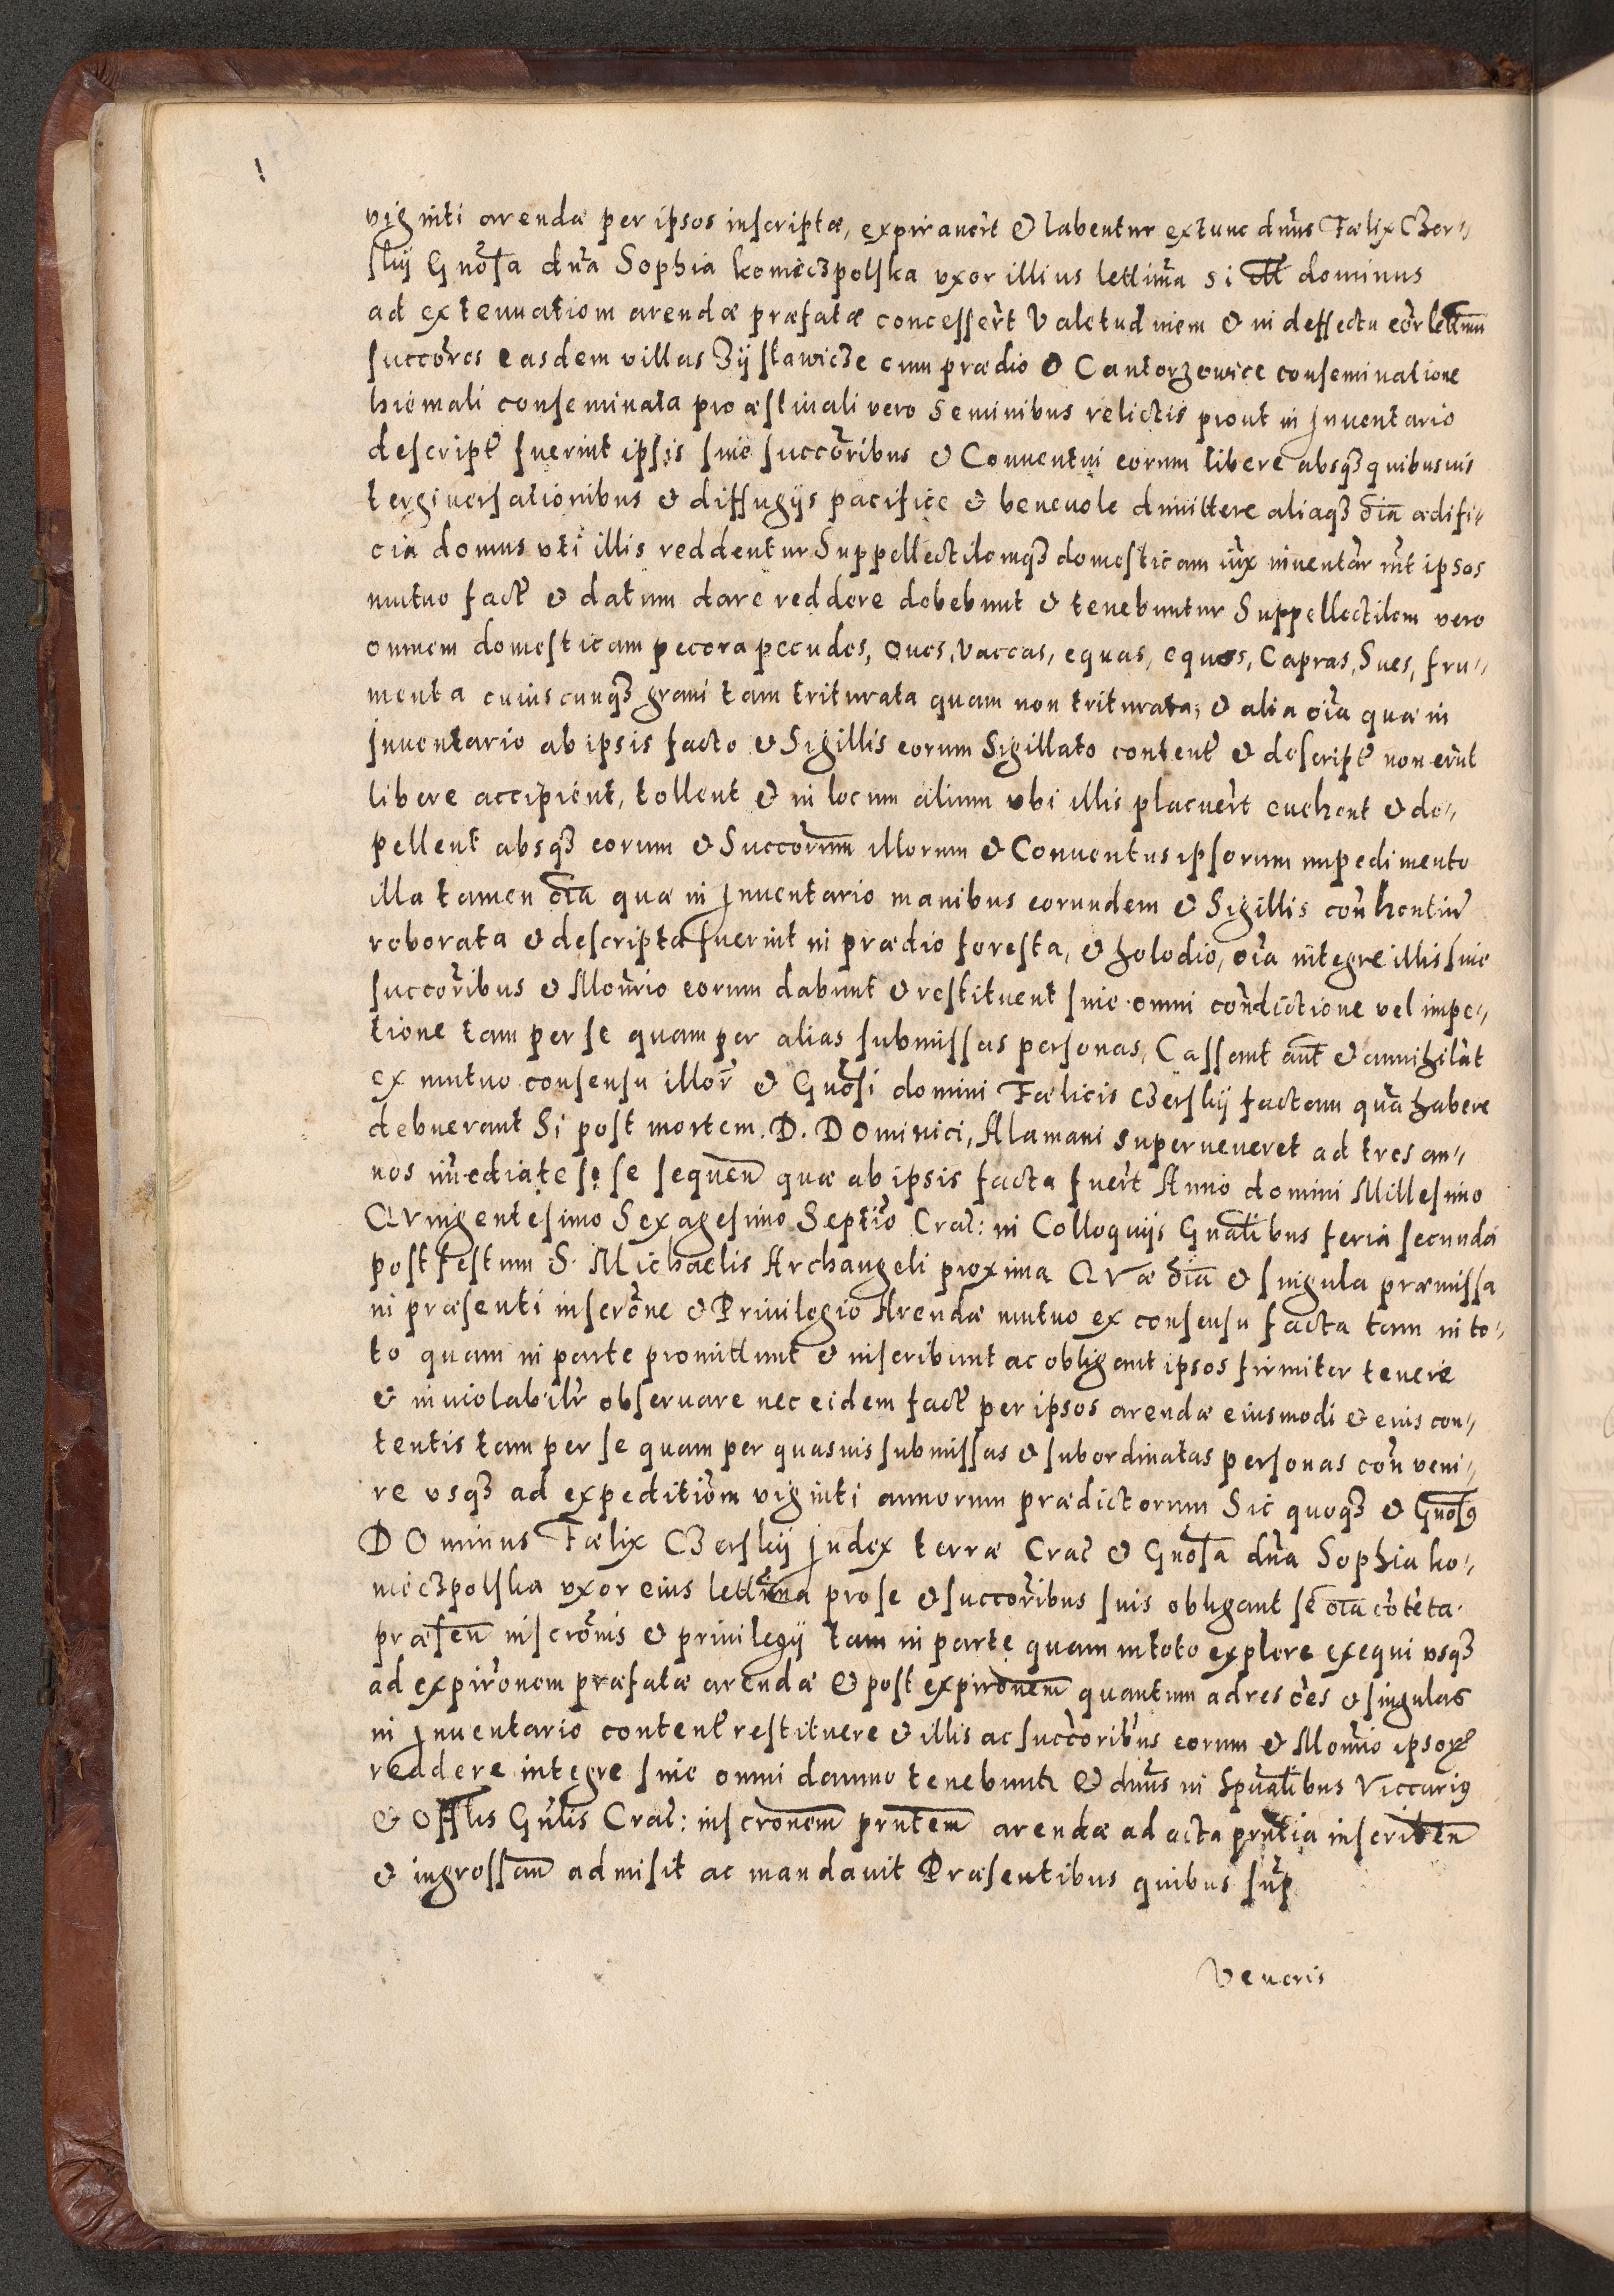 viginti arendæ per ipsos inscriptæ, expirauert̃ & labentur extunc dnũs Fœlix Czer„
skij Gnõsa dnã Sophia koniecʒpolska vxor illius lettimã si dominus
ad extenuatiom arendæ præfatæ concessert̃ Valetudiniem & in deffectu eor̃ lettimu
succõres easdem villas Zijsławicʒe cum prædio & Cantorzowice conseminatione
hiemali conseminata pro æstiuali vero seminibus relictis prout in Inuentario
descript̃ fuerint ipsis siue succõribus & Conuentui eorum libere absqʒ quibusuis
tergiuersationibus & diffugijs pacifice & beneuole dimittere aliaqʒ oĩa ædifi„
cia domus vti illis reddentur Suppellectilemqʒ domesticam iux̃ inuentar̃ int̃ ipsos
mutuo fact̃ & datum dare reddere debebunt & tenebuntur Suppellectilem vero
omnem domesticam pecora pecudes, Oues, vaccas, equas, equos, Capras, Sues, fru„
menta cuiuscunqʒ grani tam triturata quam non triturata, & alia oĩa quæ in
Inuentario ab ipsis facto & Sigillis eorum Sigillato content̃ & descript̃ non erũt
libere accipient, tollent & in locum alium vbi illis placuert̃ euehent & de„
pellent absqʒ eorum & Succorum̃ illorum & Conuentus ipsorum impedimento
illa tamen oĩa quæ in Inuentario manibus eorundem & Sigillis con̄hentiũ
roborata & descripta fuerint in prædio foresta, & holodio, oĩa integre illis siue
succõribus & Monr̃io eorum dabunt & restituent siue omni con̄dictione vel impe„
tione tam per se quam per alias submissas personas, Cassant aũt & annihilãt
ex mutuo consensu illor̃ & Gnõsi domini Fœlicis Czerskij factam quã habere
debuerant Si post mortem. D. Dominici, Alamani superueneret ad tres an„
nos im̃ediate se se sequeñ quæ ab ipsis facta fuert̃ Anno domini Millesimo
Quingentesimo Sexagesimo Septiõ Crac̃: in Colloquijs Gnãlibus feria secunda
post festum S. Michaelis Archangeli proxima Quæ oĩa & singula præmissa
in præsenti inscrõne & Priuilegio Arendæ mutuo ex consensu facta tam in to„
to quam in parte promittunt & inscribunt ac obligant ipsos firmiter tenere
& inuiolabilr̃ obseruare nec eidem fact̃ per ipsos arendæ eiusmodi & euis con„
tentis tam per se quam per quasuis submissas & subordinatas personas con̄ veni„
re vsqʒ ad expeditiõm viginti annorum prædictorum Sic quoqʒ & Gnõsꝰ
Dominus Fœlix Czerskij Iudex terræ Crac̃ & Gnõsa dnã Sophia ko„
niecʒpolska vxor eius lettima pro se & succõribus suis obligant se oĩa cõtẽta
præseñ inscrõnis & priuilegij tam in parte quam in toto explere exequi vsqʒ
ad expirõnem præfatæ arendæ & post expirõnem quantum ad res oẽs & singulas
in Inuentario content̃ restituere & illis ac succõribus eorum & Monr̃io ipsoꝝ
reddere integre sine omni damno tenebuntr & dnũs in Spũalibus Viccariꝰ
& Offlis Gnl̃is Crac̃: inscrõnem prñtem arendæ ad acta prñtia inscribeñ
& ingrossañ admisit ac mandauit Præsentibus quibus sup̃
Veneris